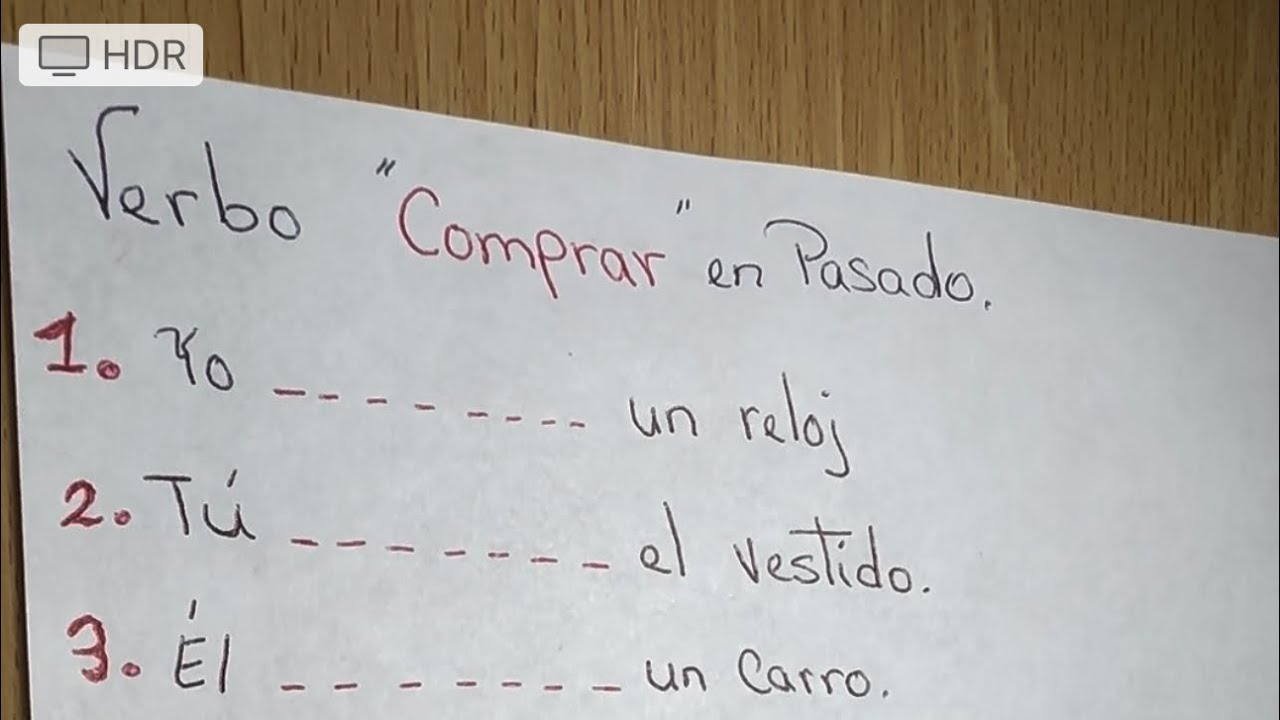 HDR
Verbo "Comprar" en Pasado.
1. Yo _ _ _ _ _ _ _ un reloj
2. Tú _ _ _ _ _ _ _ el vestido.
3. Él _ _ _ _ _ _ _ un Carro.